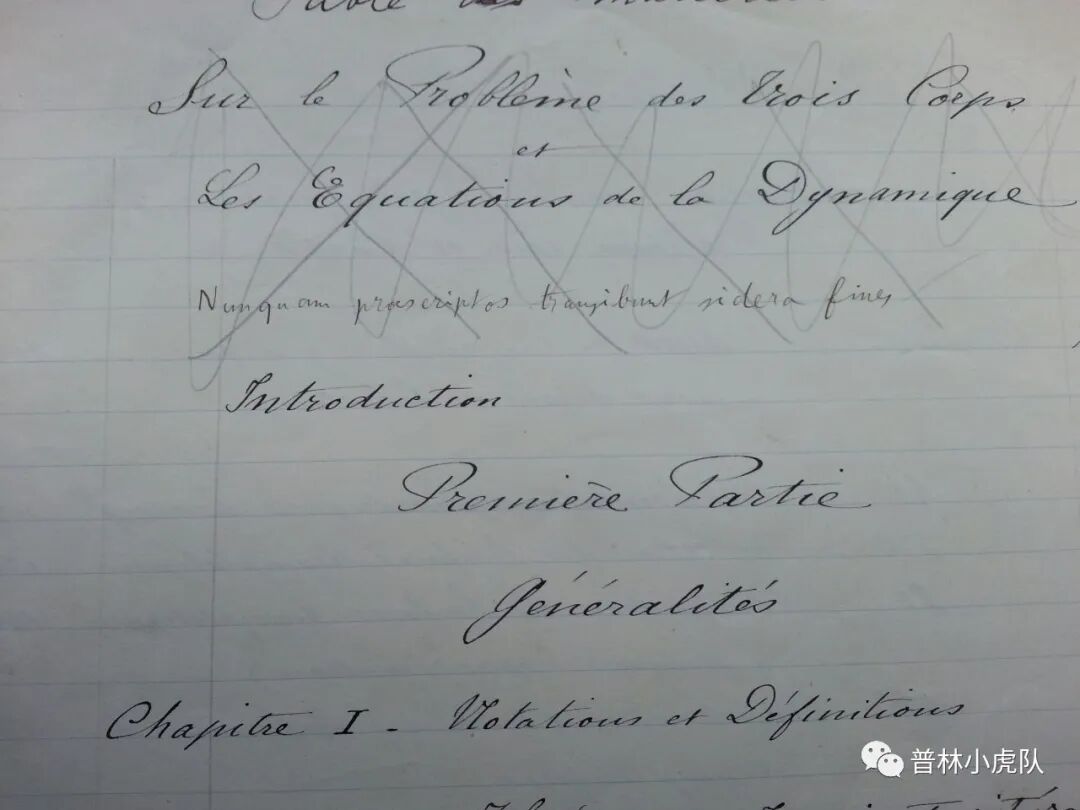 Table des
Sur le Problème des trois Corps
et
Les Equations de la Dynamique
Nunquam praescriptos transibunt sidera fines
Introduction
Première Partie
Généralités
Chapitre I - Notations et Définitions
普林小虎队